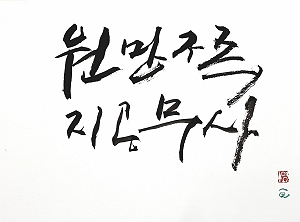 원만구족
지공무사